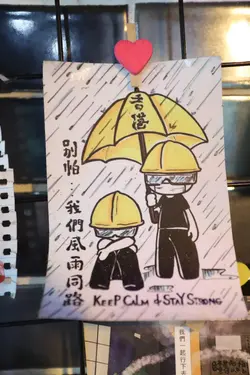 香港
別怕…我們風雨同路
KEEP CALM & STAY STRONG
我們一起行下去